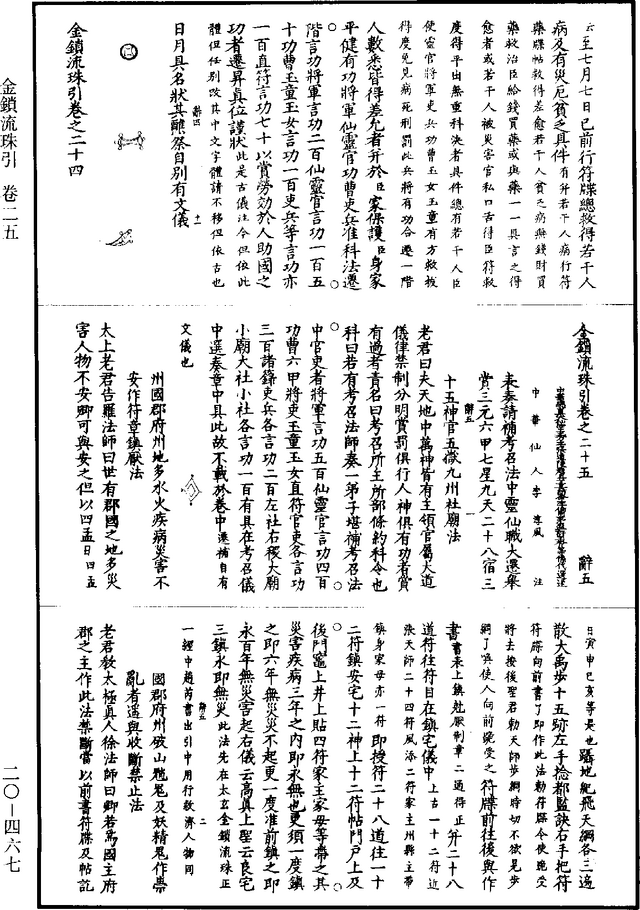 金鎖流珠引 卷二五
二〇—四六七
云至七月七日已前行符牒總救得若干人
病及有災厄貧乏具件有并若干人病行符
藥牒帖救得差愈若干人貧乏病無錢財買
藥救治臣給錢買藥或與藥一一具言之得
愈者或若干人被災害官私口舌得臣符救
度得平出無重科決者具件總有若干人臣
使靈官將軍吏兵功曹玉女玉童有方救拔
得度免見病死刑罰此兵將有功合遷一階
人數悉皆得差允者并於臣家保護臣身家
平健有功將軍仙靈官功曹吏兵准科法遷
階言功將軍言功二百仙靈官言功一百五
十功曹玉童玉女言功一百吏兵等言功亦
一百直符言功七十以賞勞効於人助國之
功者遷昇真位謹狀此是古儀注今但依此
體但任別改其中文字體請不移但依古也
日月具名狀其醮祭自別有文儀
辭四
十一
金鎖流珠引卷之二十四
金鎖流珠引卷之二十五 辭五
中華仙人李淳風注
表奏請補考召法中靈仙職大選舉
賞三元六甲七星九天二十八宿三
十五神官五嶽九州社廟法
辭五
一
老君曰夫天地中萬神皆有主領官屬大道
儀律禁制分明賞罰俱行人神俱有功者賞
有過者責名曰考召所主所部條約科令也
科曰若有考召法師奏一第子堪補考召法
中官吏者將軍言功五百仙靈官言功四百
功曹六甲將吏玉童玉女直符官吏各言功
三百諸籙吏兵各言功二百左社右稷大廟
小廟大社小社各言功一百有具在考召儀
中選奏章中具此故不載於卷中遷補自有
文儀也
州國郡府州地多水火疾病災害不
安作符章鎮厭法
太上老君告羅法師曰世有郡國之地多災
害人物不安卿可與安之但以四孟日四孟
日寅申巳亥等是也躡地紀飛天綱各三遍
散大禹步十五跡左手捻都監訣右手把符
符牒向前書了即作此法勑符牒令使魄受
將去按後聖君勑天師步綱時切不欲見步
綱了喚使人向前魄受之符牒前往後與作
書書表上鎮尅厭制章二通得正并二十八
道符往符目在鎮宅儀中上古一十二符近
張天師二十四符風添二符家主州縣主帶
鎮身家母亦一符即授符二十八道往一十
二符鎮安宅十二神上十二符帖門戶上及
後門竈上井上貼四符家主家母等帶之其
災害疾病三年之內即永無也更須一度鎮
之即六年無災災不起更一度准前鎮之即
永百年無災害起右儀云高真上聖云良宅
三鎮永即無災此法先在太玄金鎖流珠正
辭五
二
一經中趙芮書出引中用行救濟人物同
國郡府州破山魈魁及妖精鬼作祟
亂者遥與收斷禁止法
老君教太極真人徐法師曰卿若為國主府
郡之主作此法禁斷當以前書符牒及帖訖